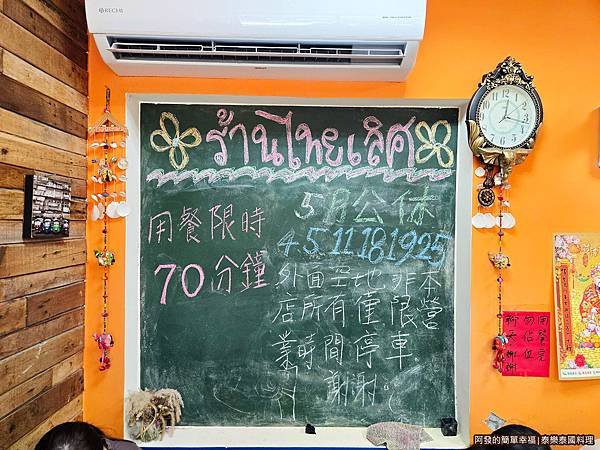 RECHI
ร้านไทยเลิศ
5月公休
4.5.11.18.19.25
用餐限時
70分鐘
外面空地非本
店所有僅限營
業時間停車
謝謝。
用餐完
勿佔位
聊天謝謝
阿發的簡單幸福 | 泰樂泰國料理